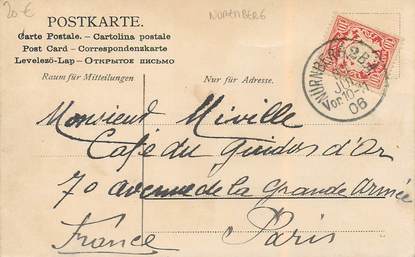 20 €
NUREMBERG
POSTKARTE.
Carte Postale. – Cartolina postale
Post Card – Correspondenzkarte
Levelező-Lap – Открытое письмо
Raum für Mitteilungen
Nur für Adresse.
NÜRNBERG 2 B.P.
Vor. 10-11
06
10
Monsieur Miville
Café du Guidos d'Or
70 avenue de la Grande Armée
Paris
France